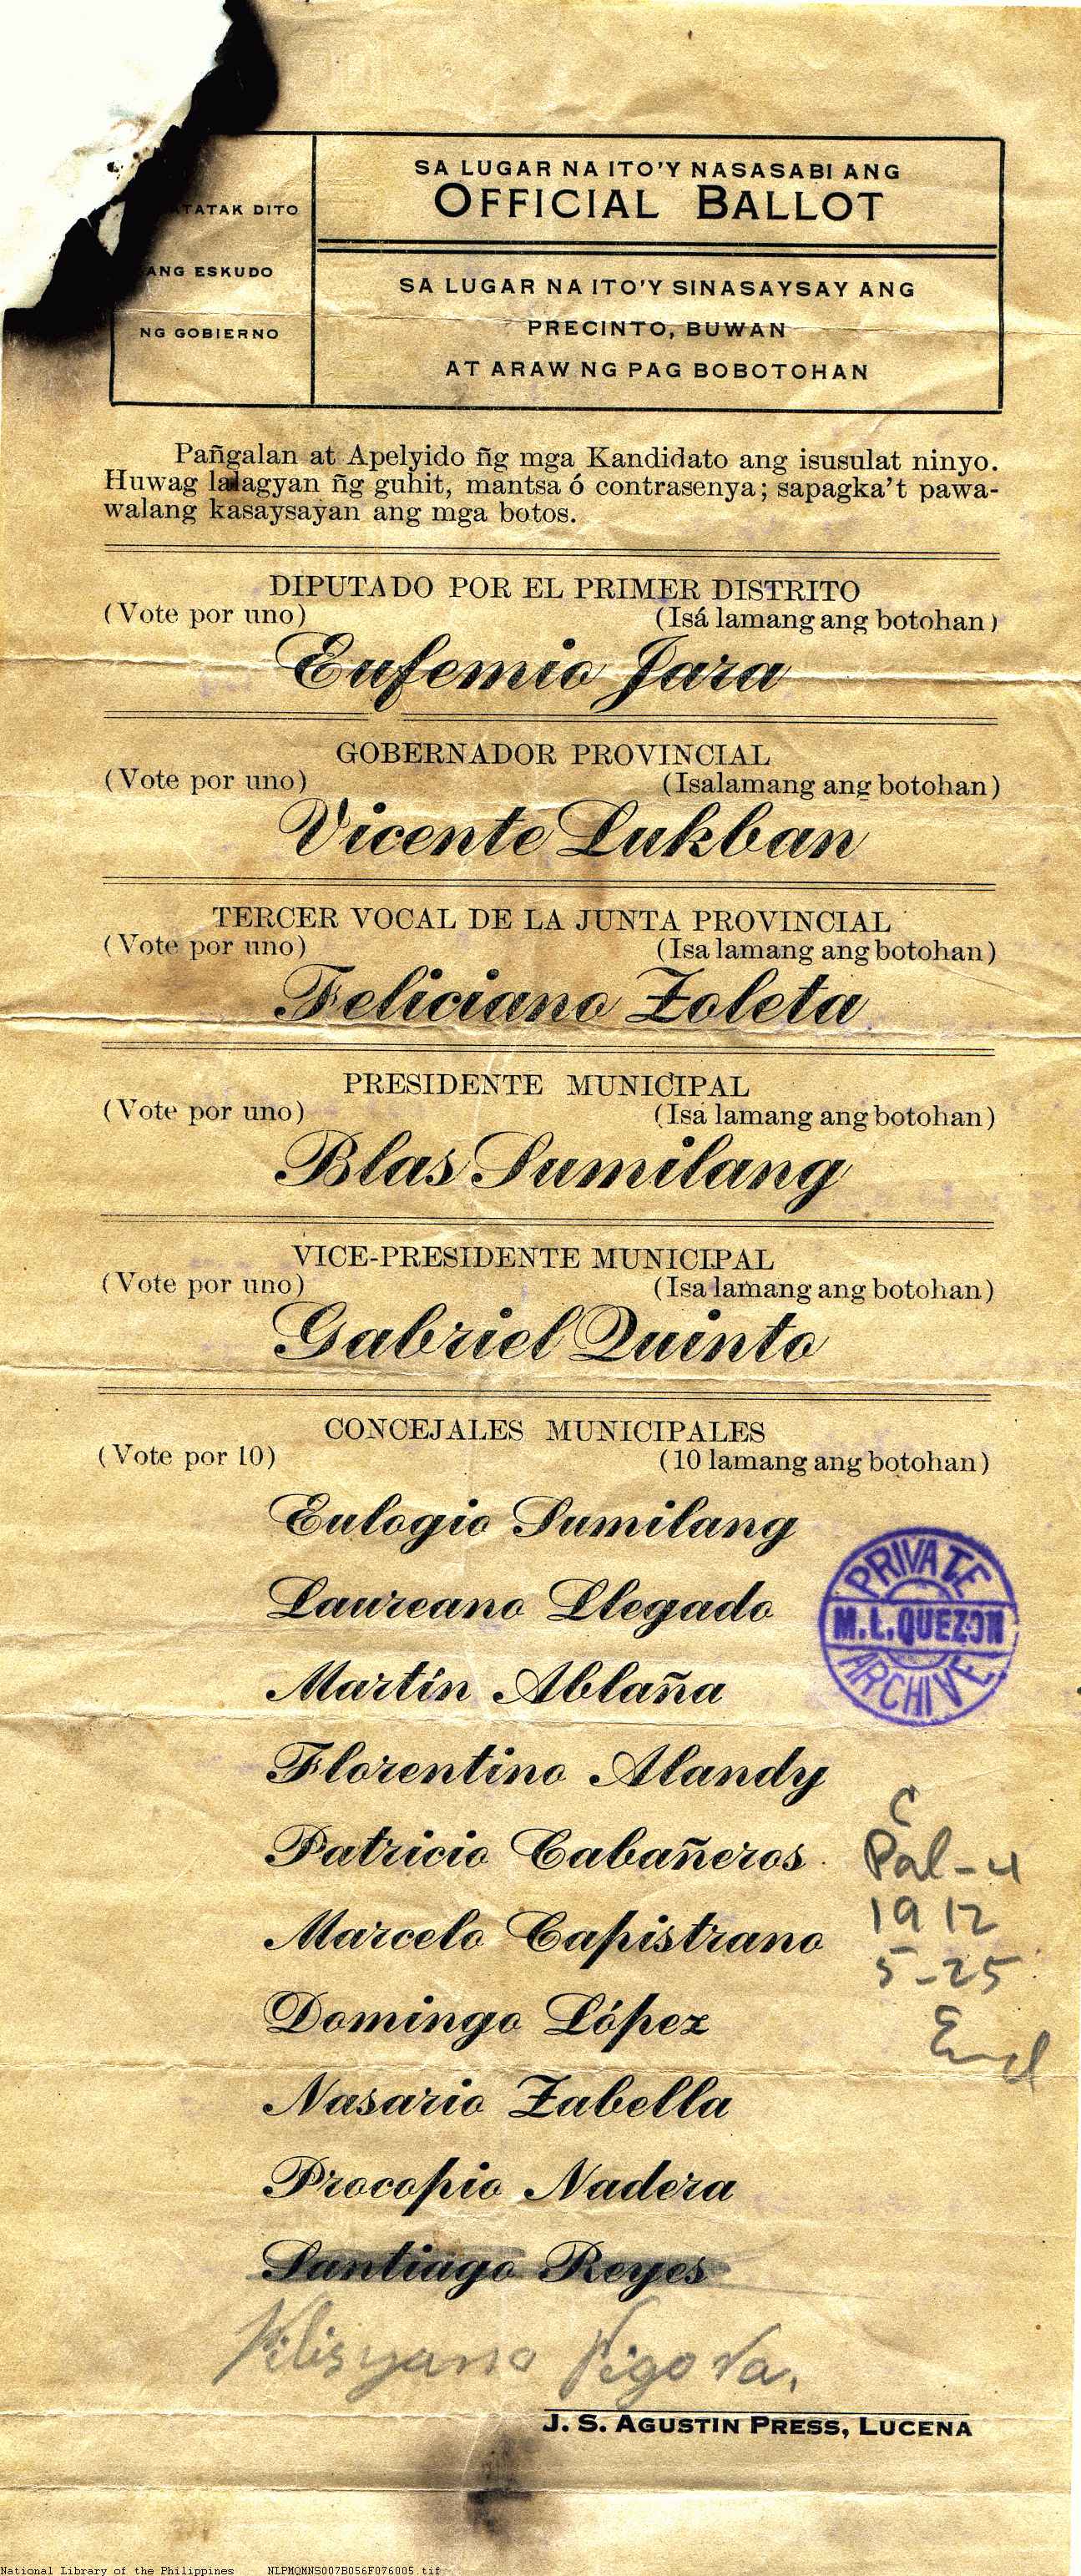 SA LUGAR NA ITO'Y NASASABI ANG
OFFICIAL BALLOT
TATAK DITO
ANG ESKUDO
NG GOBIERNO
SA LUGAR NA ITO'Y SINASAYSAY ANG
PRECINTO, BUWAN
AT ARAW NG PAG BOBOTOHAN
Pañgalan at Apelyido ñg mga Kandidato ang isusulat ninyo.
Huwag lalagyan ñg guhit, mantsa ó contrasenya; sapagka't pawa-
walang kasaysayan ang mga botos.
DIPUTADO POR EL PRIMER DISTRITO
(Vote por uno) (Isá lamang ang botohan)
Eufemio Jara
GOBERNADOR PROVINCIAL
(Vote por uno) (Isalamang ang botohan)
Vicente Lukban
TERCER VOCAL DE LA JUNTA PROVINCIAL
(Vote por uno) (Isa lamang ang botohan)
Feliciano Zoleta
PRESIDENTE MUNICIPAL
(Vote por uno) (Isa lamang ang botohan)
Blas Sumilang
VICE-PRESIDENTE MUNICIPAL
(Vote por uno) (Isa lamang ang botohan)
Gabriel Quinto
CONCEJALES MUNICIPALES
(Vote por 10) (10 lamang ang botohan)
Eulogio Sumilang
Laureano Llegado
Martín Ablaña
Florentino Alandy
Patricio Cabañeros
Marcelo Capistrano
Domingo López
Nasario Zabella
Procopio Nadera
Santiago Reyes
PRIVATE
M. L. QUEZON
ARCHIVE
C
Pal-4
1912
5-25
Encl
J. S. AGUSTIN PRESS, LUCENA
National Library of the Philippines NLPMQMNS007B056F076005.tif